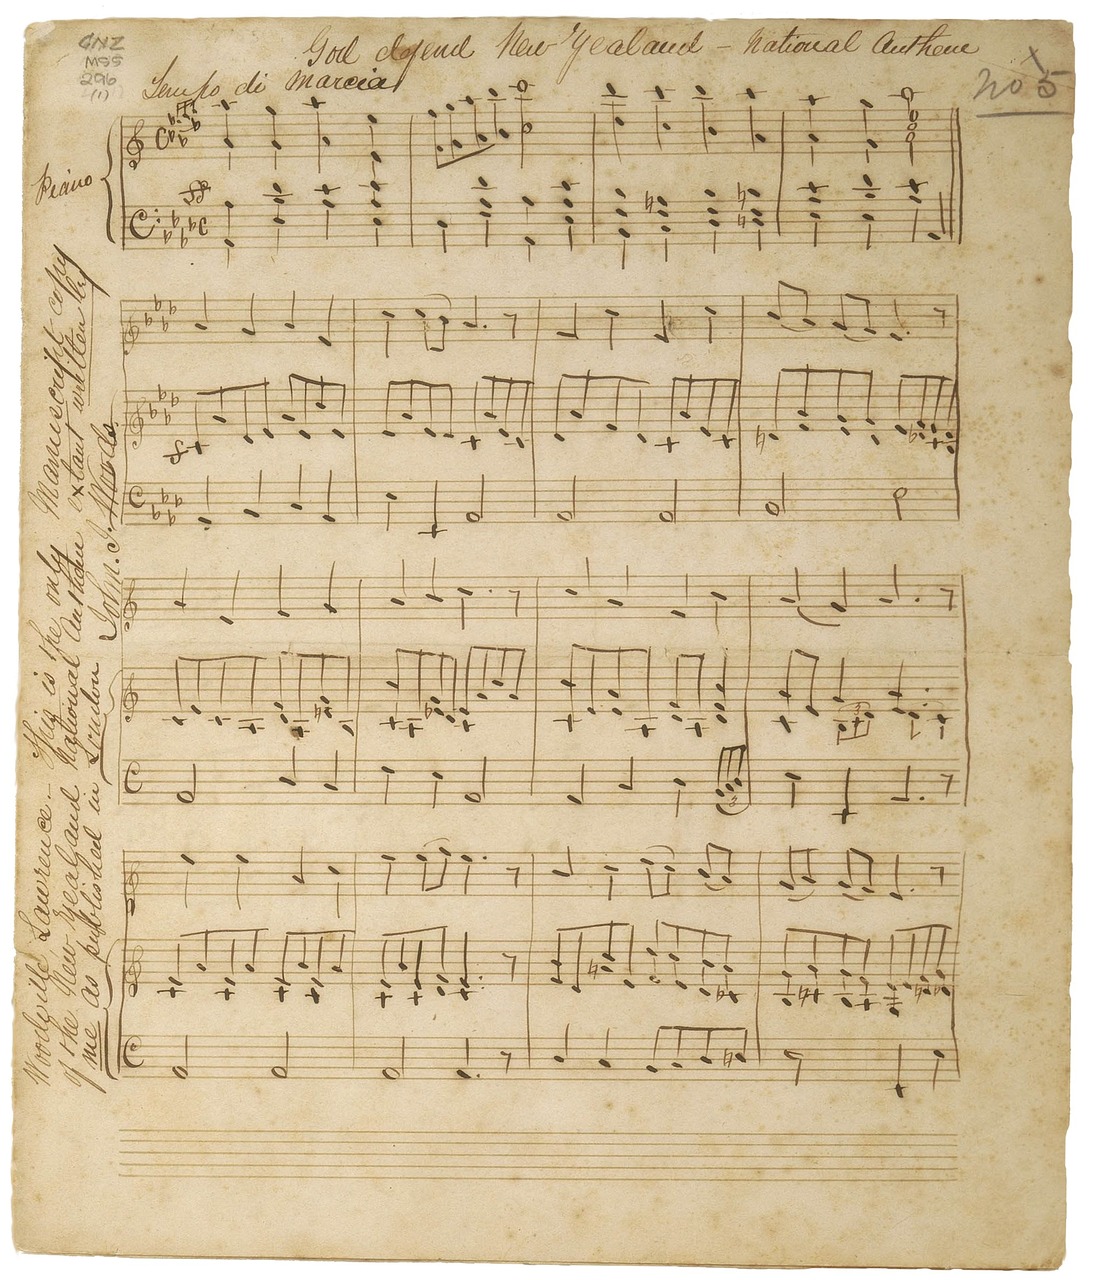 GNZ
MSS
296
(1)
God defend New Zealand – National Anthem
No 5
Tempo di Marcia
Piano
ff
f
3
3
Woodville Lawrence – This is the only Manuscript copy
of the New Zealand National Anthem extant written by
me as published in London John. J. Woods.